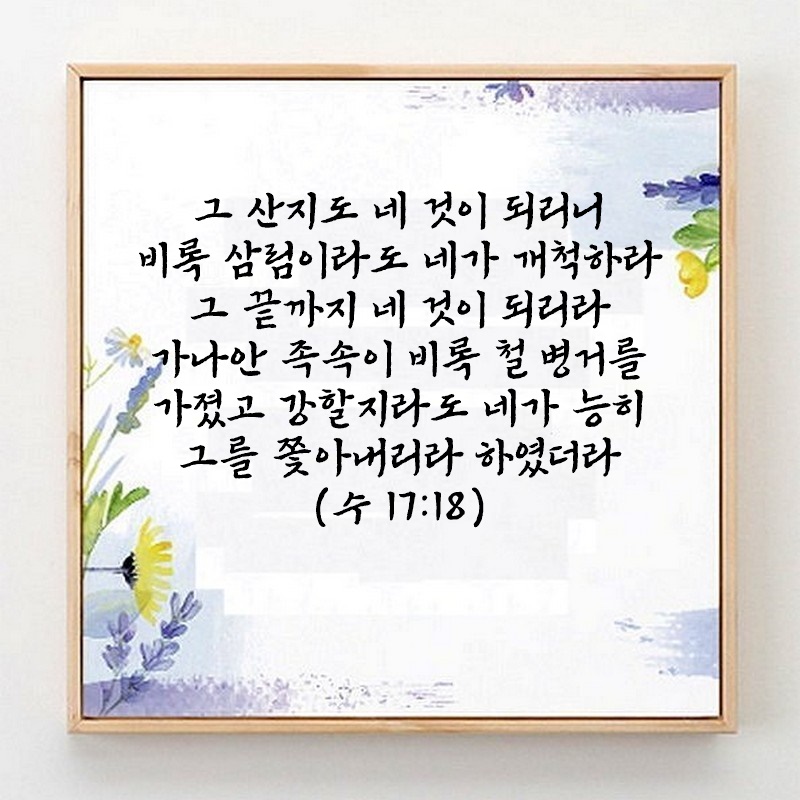 그 산지도 네 것이 되리니
비록 삼림이라도 네가 개척하라
그 끝까지 네 것이 되리라
가나안 족속이 비록 철 병거를
가졌고 강할지라도 네가 능히
그를 쫓아내리라 하였더라
(수 17:18)